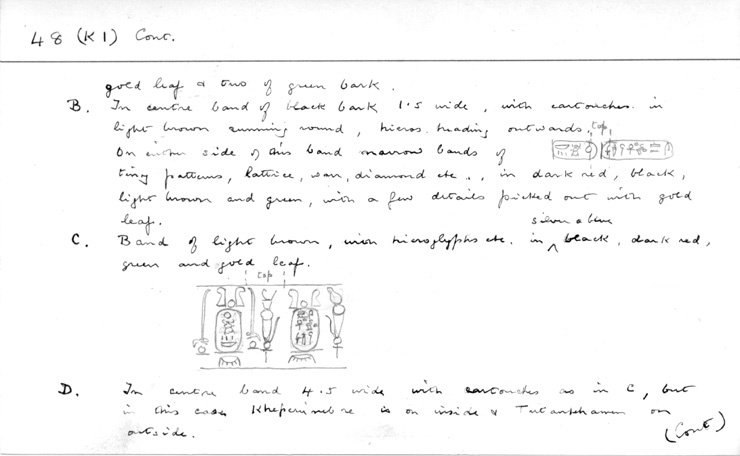 48 (K1) Cont.
gold leaf & two of green bark.
B. In centre band of black bark 1.5 wide, with cartouches in
light brown running round, hieros. heading outwards.
top
On either side of this band narrow bands of
tiny patterns, lattice, wave, diamond etc., in dark red, black,
light brown and green, with a few details picked out with gold
leaf.
silver & blue
C. Band of light brown, with hieroglyphs etc. in ^ black, dark red,
green and gold leaf.
top
D. In centre band 4.5 wide with cartouches as in C, but
in this case Kheperunebre is on inside & Tutankhamen on
outside.
(Cont)